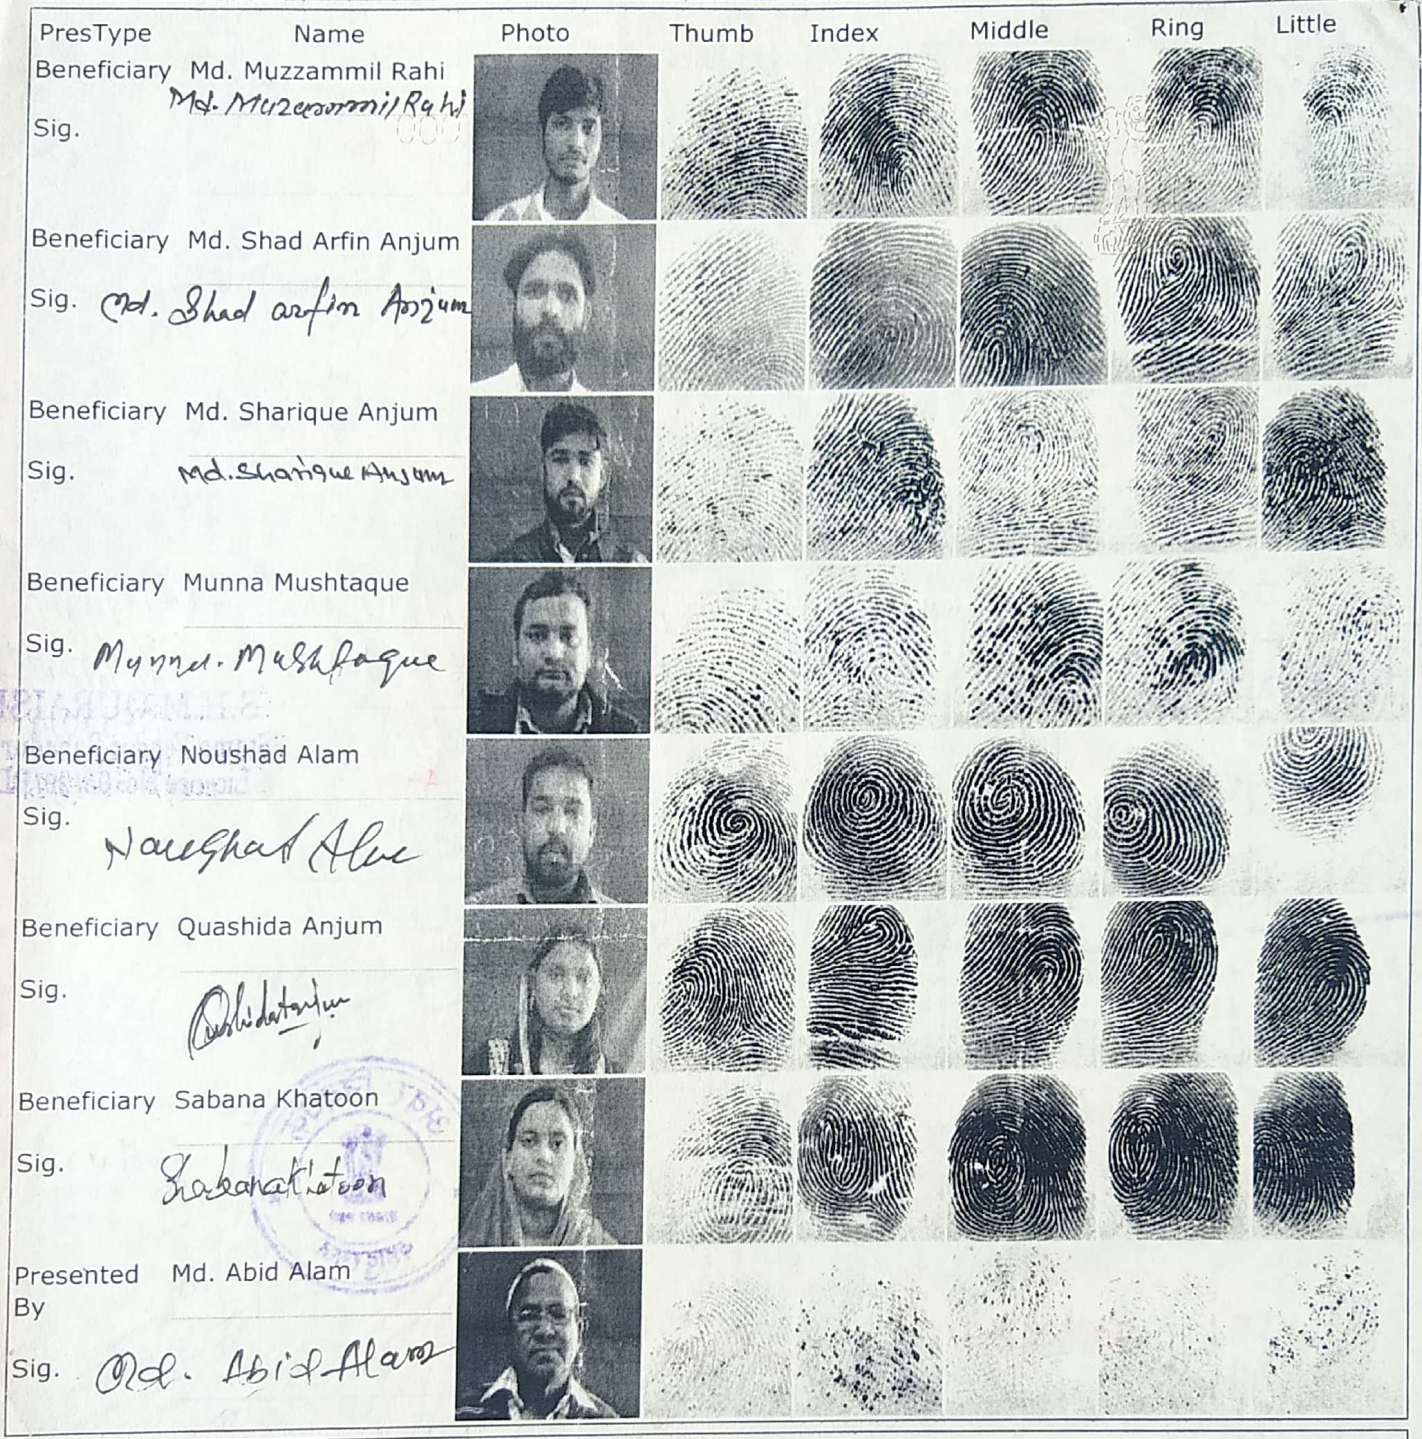 PresType Name Photo Thumb Index Middle Ring Little
Beneficiary Md. Muzzammil Rahi
Md. Muzammil Rahi
Sig.
Beneficiary Md. Shad Arfin Anjum
Sig. Md. Shad arfin Anjum
Beneficiary Md. Sharique Anjum
Sig. Md. Sharique Anjum
Beneficiary Munna Mushtaque
Sig. Munna. Mushtaque
Beneficiary Noushad Alam
Sig. Noushad Alam
Beneficiary Quashida Anjum
Sig.
Beneficiary Sabana Khatoon
Sig. Shabana Khatoon
Presented Md. Abid Alam
By
Sig. Md. Abid Alam